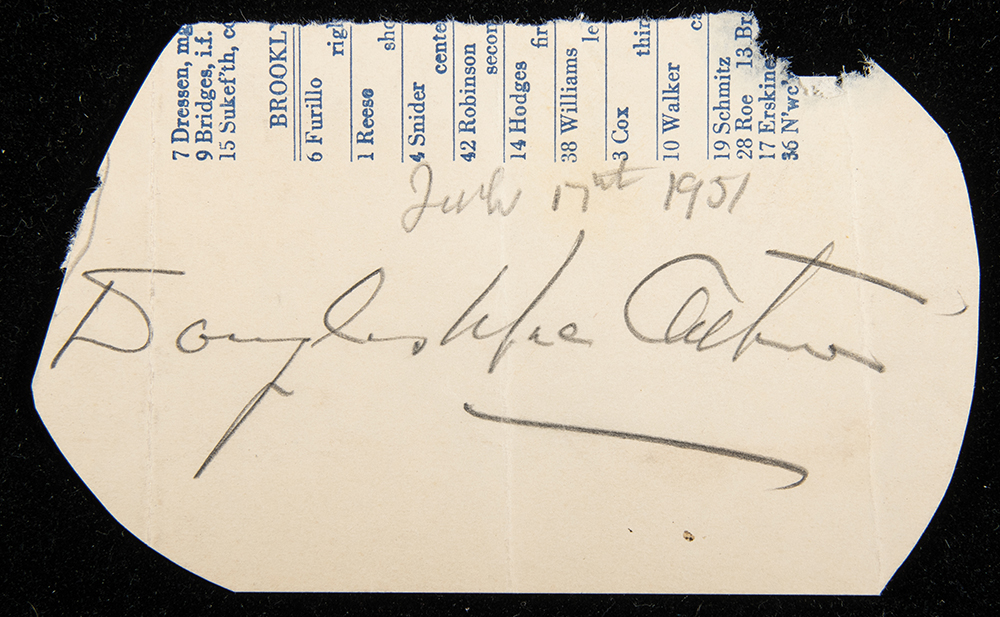 7 Dressen, mg
9 Bridges, i.f.
15 Sukef'th, co
BROOKLY
6 Furillo righ
1 Reese sho
4 Snider cente
42 Robinson secon
14 Hodges fir
38 Williams le
3 Cox thir
10 Walker ca
19 Schmitz
28 Roe 13 Br
17 Erskine
36 N'wc'
17 1951
Douglas MacArthur